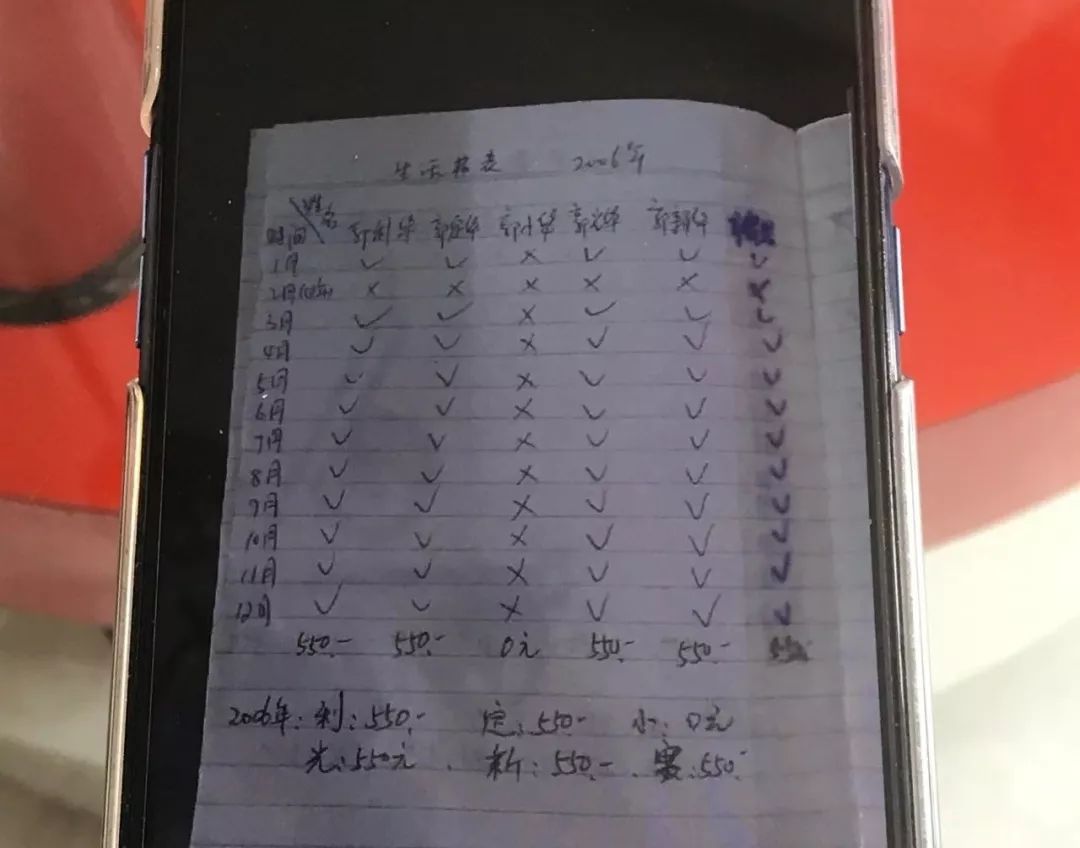 生活报表 2006年
姓名
时间 郭利华 郭定华 郭小华 郭光华 郭新华
1月 ✓ ✓ × ✓ ✓ ✓
2月 × × × × × ×
3月 ✓ ✓ × ✓ ✓ ✓
4月 ✓ ✓ × ✓ ✓ ✓
5月 ✓ ✓ × ✓ ✓ ✓
6月 ✓ ✓ × ✓ ✓ ✓
7月 ✓ ✓ × ✓ ✓ ✓
8月 ✓ ✓ × ✓ ✓ ✓
9月 ✓ ✓ × ✓ ✓ ✓
10月 ✓ ✓ × ✓ ✓ ✓
11月 ✓ ✓ × ✓ ✓ ✓
12月 ✓ ✓ × ✓ ✓ ✓
550.- 550.- 0元 550.- 550.-
2006年: 利: 550.- 定: 550.- 小: 0元
光: 550元. 新: 550.- . :550.-